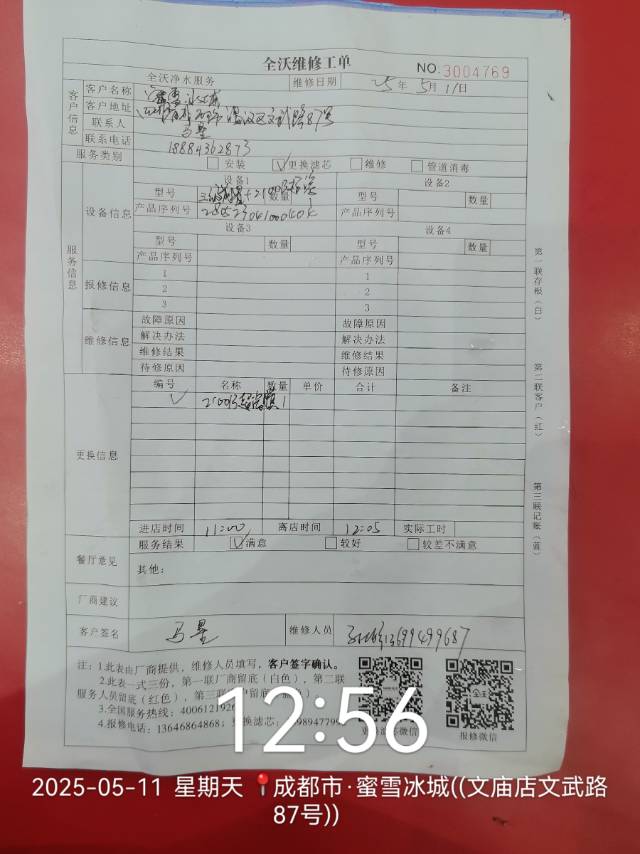 全沃维修工单
NO.3004769
全沃净水服务
维修日期 25年5月11日
客户信息
客户名称 蜜雪冰城
客户地址 文武路87号
联系人 马星
联系电话 18884362873
服务类别 安装 ✓更换滤芯 维修 管道消毒
服务信息
设备信息
设备1 设备2
型号 数量 型号 数量
产品序列号 产品序列号
设备3 设备4
型号 数量 型号 数量
产品序列号 产品序列号
报修信息
1 1
2 2
3 3
维修信息
故障原因 故障原因
解决办法 解决办法
维修结果 维修结果
待修原因 待修原因
更换信息
编号 名称 数量 单价 合计 备注
✓ 1
进店时间 11:00 离店时间 12:05 实际工时
餐厅意见
服务结果 ✓满意 较好 较差不满意
其他:
厂商建议
客户签名 马星 维修人员 13699499687
注:1.此表由厂商提供,维修人员填写,客户签字确认。
2.此表一式三份,第一联厂商留底(白色),第二联
服务人员留底(红色),第三联
留底(
3.全国服务热线:4006121926
4.报修电话:13646864868;更换滤芯:
报修微信
第一联存根(白)
第二联客户(红)
第三联记账(蓝)
12:56
2025-05-11 星期天 成都市·蜜雪冰城((文庙店文武路
87号))